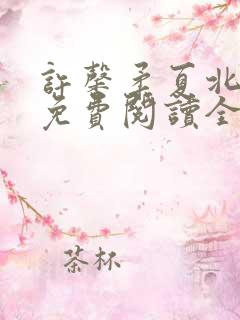 許馨柔夏北
免費閱讀全
茶杯